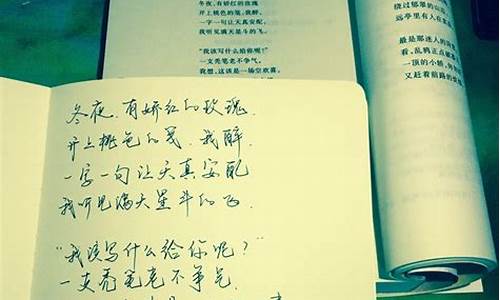 冬夜,有娇红的玫瑰
开上桃色的笺,我醉,
一字一句让天真安配,
我听见满天星斗的飞。
"我该写什么给你呢?"
一支秃笔老不争气。
我想,这该是一场空欢喜,
绕过郁翠的山
远亭里有人在
最是那迷人的
看,乱鸦正点破
一顶的小轿,
又赶着前路的
冬夜,有娇红的玫瑰,
开上桃色的笺,我醉,
一字一句让天真安配
我听见满天星斗的飞.
"我该写什么给你呢?"
一支秃笔老不争气.